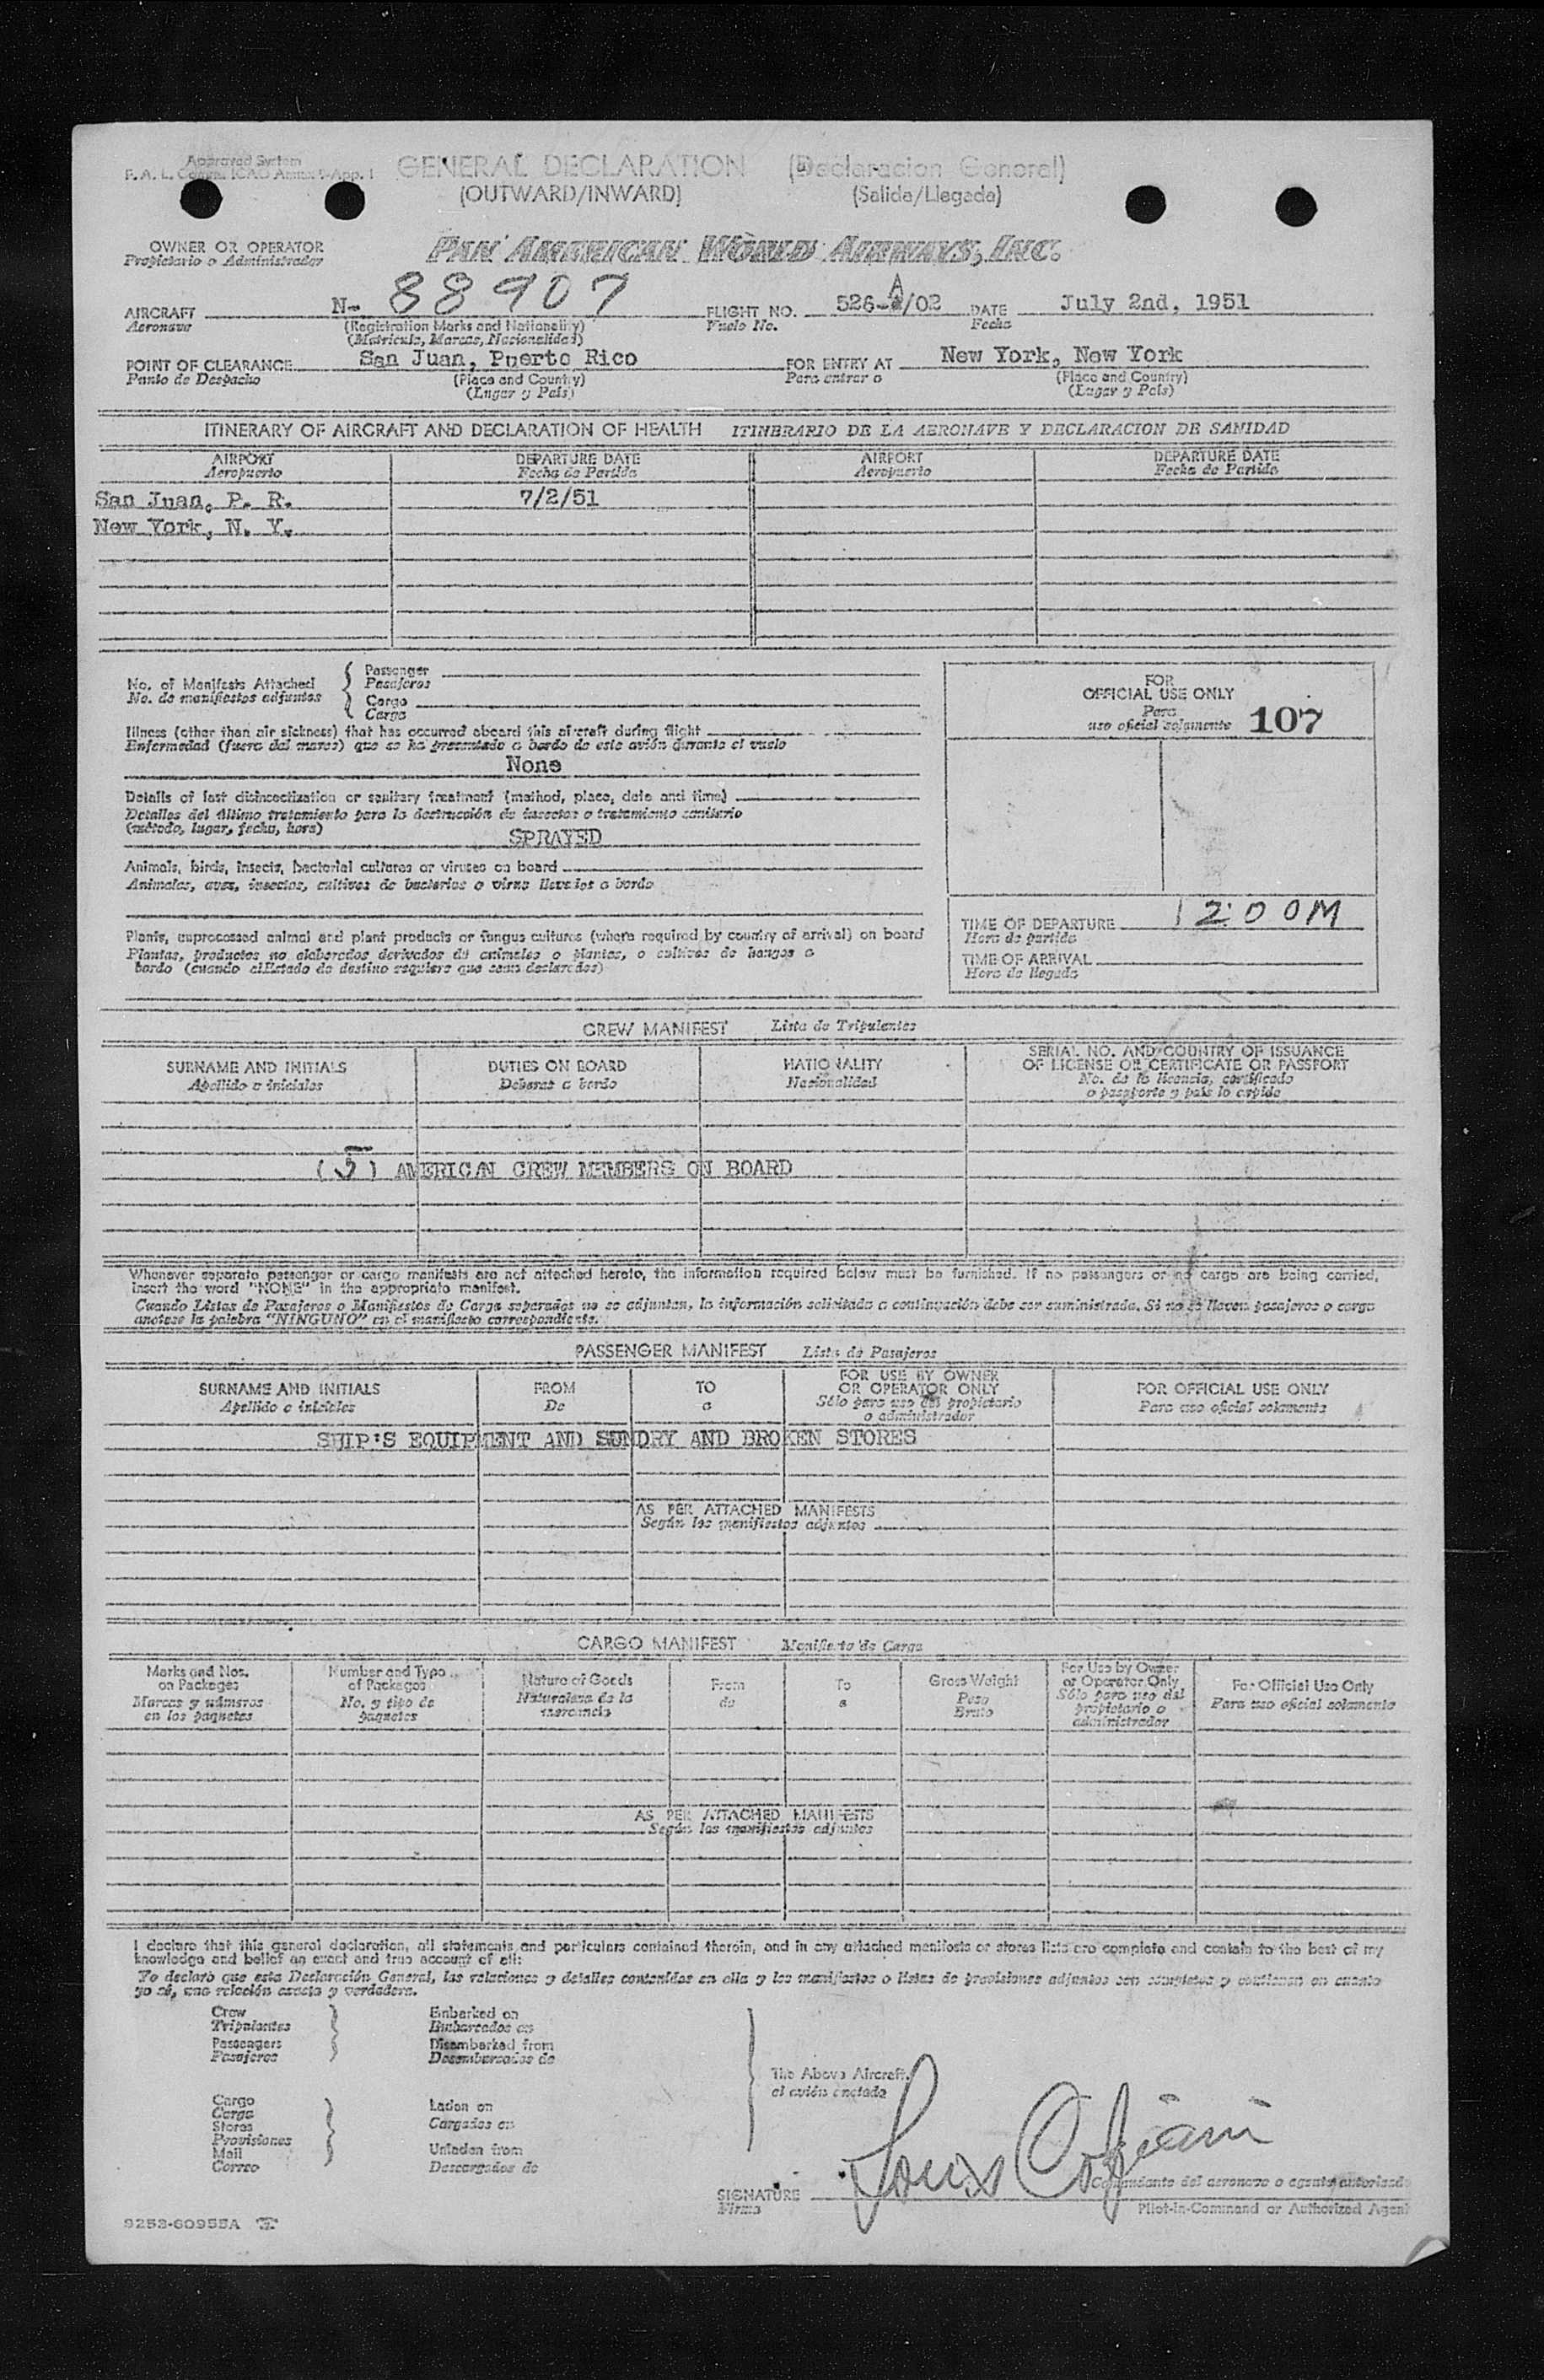 Approved System
F. A. L. Comm. ICAO Annex 9-App. 1
GENERAL DECLARATION (Declaracion General)
(OUTWARD/INWARD) (Salida/Llegada)
OWNER OR OPERATOR
Propietario o Administrador
PAN AMERICAN WORLD AIRWAYS, INC.
AIRCRAFT N- 88907 FLIGHT NO. 526-A/02 DATE July 2nd, 1951
Aeronave (Registration Marks and Nationality) Vuelo No. Fecha
(Matricula, Marcas, Nacionalidad)
POINT OF CLEARANCE San Juan, Puerto Rico FOR ENTRY AT New York, New York
Punto de Despacho (Place and Country) Para entrar a (Place and Country)
(Lugar y País) (Lugar y País)
ITINERARY OF AIRCRAFT AND DECLARATION OF HEALTH ITINERARIO DE LA AERONAVE Y DECLARACION DE SANIDAD
AIRPORT DEPARTURE DATE AIRPORT DEPARTURE DATE
Aeropuerto Fecha de Partida Aeropuerto Fecha de Partida
San Juan, P. R. 7/2/51
New York, N. Y.
No. of Manifests Attached
No. de manifiestos adjuntos
Passenger
Pasajeros
Cargo
Carga
FOR
OFFICIAL USE ONLY
Para
uso oficial solamente 107
Illness (other than air sickness) that has occurred aboard this aircraft during flight
Enfermedad (fuera del mareo) que se ha presentado a bordo de este avión durante el vuelo
None
Details of last disinsectization or sanitary treatment (method, place, date and time)
Detalles del último tratamiento para la destrucción de insectos o tratamiento sanitario
(método, lugar, fecha, hora)
SPRAYED
Animals, birds, insects, bacterial cultures or viruses on board
Animales, aves, insectos, cultivos de bacterias o virus llevados a bordo
Plants, unprocessed animal and plant products or fungus cultures (where required by country of arrival) on board
Plantas, productos no elaborados derivados de animales o plantas, o cultivos de hongos a
bordo (cuando el Estado de destino requiere que sean declarados)
TIME OF DEPARTURE 1200M
Hora de partida
TIME OF ARRIVAL
Hora de llegada
CREW MANIFEST Lista de Tripulantes
SURNAME AND INITIALS DUTIES ON BOARD NATIONALITY SERIAL NO. AND COUNTRY OF ISSUANCE
Apellido e iniciales Deberes a bordo Nacionalidad OF LICENSE OR CERTIFICATE OR PASSPORT
No. de la licencia, certificado
o pasaporte y país lo expide
(5) AMERICAN CREW MEMBERS ON BOARD
Whenever separate passenger or cargo manifests are not attached hereto, the information required below must be furnished. If no passengers or no cargo are being carried,
insert the word "NONE" in the appropriate manifest.
Cuando Listas de Pasajeros o Manifiestos de Carga separados no se adjuntan, la información solicitada a continuación debe ser suministrada. Si no se llevan pasajeros o carga
anótese la palabra "NINGUNO" en el manifiesto correspondiente.
PASSENGER MANIFEST Lista de Pasajeros
SURNAME AND INITIALS FROM TO FOR USE BY OWNER OR OPERATOR ONLY FOR OFFICIAL USE ONLY
Apellido e iniciales De a Sólo para uso del propietario o administrador Para uso oficial solamente
SHIP'S EQUIPMENT AND SUNDRY AND BROKEN STORES
AS PER ATTACHED MANIFESTS
Según los manifiestos adjuntos
CARGO MANIFEST Manifiesto de Carga
Marks and Nos. on Packages Number and Type of Packages Nature of Goods From To Gross Weight For Use by Owner or Operator Only For Official Use Only
Marcas y números en los paquetes No. y tipo de paquetes Naturaleza de la mercancia de a Peso Bruto Sólo para uso del propietario o administrador Para uso oficial solamente
AS PER ATTACHED MANIFESTS
Según los manifiestos adjuntos
I declare that this general declaration, all statements and particulars contained therein, and in any attached manifests or stores lists are complete and contain to the best of my
knowledge and belief an exact and true account of all:
Yo declaro que esta Declaración General, las relaciones y detalles contenidas en ella y los manifiestos o listas de provisiones adjuntos son completos y contienen en cuanto
yo sé, una relación exacta y verdadera.
Crew
Tripulantes
Passengers
Pasajeros
Embarked on
Embarcados en
Disembarked from
Desembarcados de
The Above Aircraft.
el avión anotado
Cargo
Carga
Stores
Provisiones
Mail
Correo
Laden on
Cargados en
Unladen from
Descargados de
SIGNATURE Louis
Firma
Comandante del aeronave o agente autorizado
Pilot-in-Command or Authorized Agent
9253-60955A